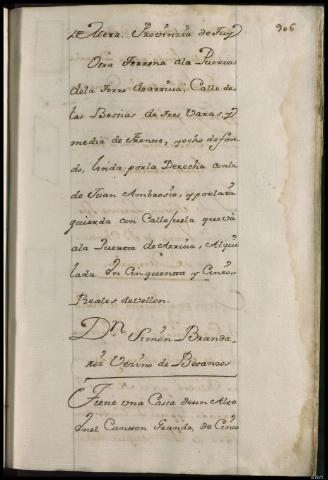 906
de Mera. Provincia de Tuy
Otra Terrena ala Puerta
dela Torre dearriva, Calle de
las Bestias de tres varas, y
media de Frente, y ocho de fon
do, linda por la Derecha conla
de Juan Ambrosio, y por la iz
quierda con Callejuela que và
ala Puerta de Arriva, Alqui
lada en Cinquenta y Cinco
Reales de vellon.
Dn. Simòn Branda
riz Vecino de Betanzos
Tiene una Casa de un Alto
en el Canton Grande, de Cinco